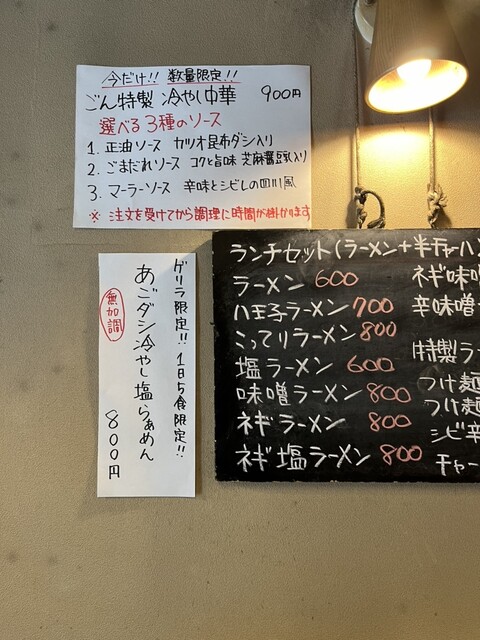 今だけ!! 数量限定!!
ごん特製 冷やし中華 900円
選べる3種のソース
1. 正油ソース カツオ昆布ダシ入り
2. ごまだれソース コクと旨味 芝麻醤豆乳入り
3. マーラーソース 辛味とシビレの四川風
※ 注文を受けてから調理に時間が掛かります
ゲリラ限定!! 1日5食限定!!
あごダシ冷やし塩らぁめん
無加調
800円
ランチセット(ラーメン+半チャーハン
ラーメン 600
八王子ラーメン 700
こってりラーメン 800
塩ラーメン 600
味噌ラーメン 800
ネギラーメン 800
ネギ塩ラーメン 800
ネギ味噌
辛味噌
特製ラー
つけ麺
つけ麺
シビ辛
チャー